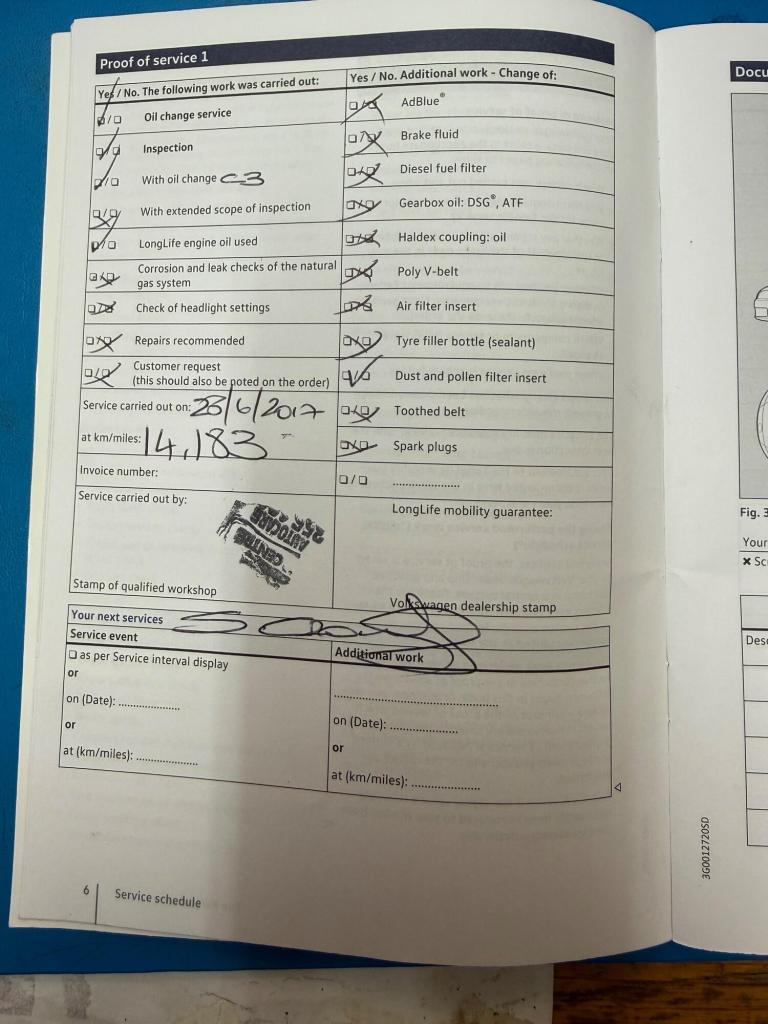 Proof of service 1
Yes / No. The following work was carried out:
Oil change service
Inspection
With oil change C3
With extended scope of inspection
LongLife engine oil used
Corrosion and leak checks of the natural
gas system
Check of headlight settings
Repairs recommended
Customer request
(this should also be noted on the order)
Service carried out on: 28/6/2017
at km/miles: 14,183
Invoice number:
Service carried out by:
AUTOCARE
CENTRE
Stamp of qualified workshop
Yes / No. Additional work - Change of:
AdBlue®
Brake fluid
Diesel fuel filter
Gearbox oil: DSG®, ATF
Haldex coupling: oil
Poly V-belt
Air filter insert
Tyre filler bottle (sealant)
Dust and pollen filter insert
Toothed belt
Spark plugs
LongLife mobility guarantee:
Volkswagen dealership stamp
Your next services
Service event
as per Service interval display
or
on (Date):
or
at (km/miles):
Additional work
on (Date):
or
at (km/miles):
6 Service schedule
Docu
Fig. 3
Your
Sc
Desc
3G0012720SD